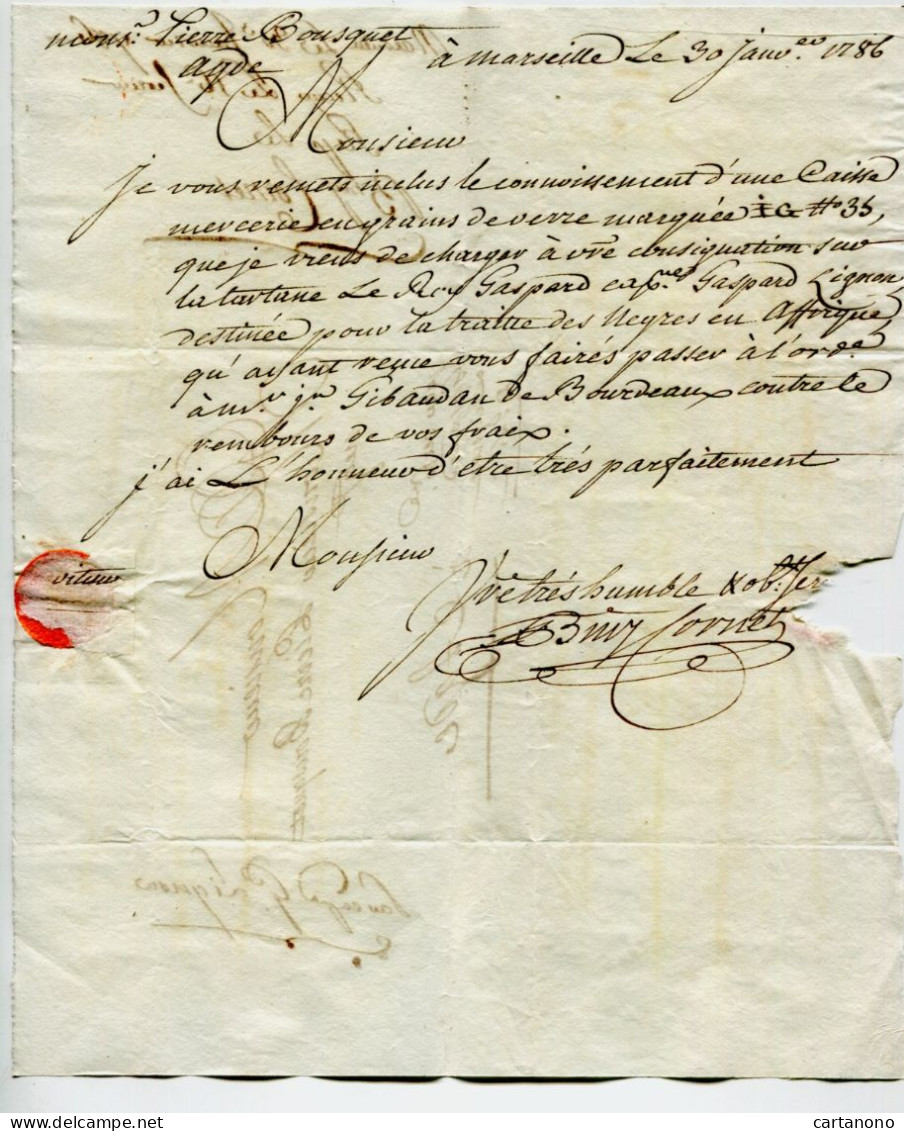 monsr. Pierre Bousquet à marseille Le 30 janver. 1786
agde
Monsieur
je vous remets inclus le connoissement d'une Caisse
mercerie en grains de verre marquée IG No 35,
que je viens de charger à vre consignation sur
la tartane Le Roy Gaspard capne. Gaspard Lignon,
destinée pour la traitte des Negres en Affrique,
qu'ayant recue vous fairés passer à l'orde.
à mr. jn Gibaudan de Bourdeaux contre le
rembours de vos fraix.
j'ai L'honneur d'etre trés parfaitement
Monsieur
Vre trés humble & obt. ser
Cornet
cartanono